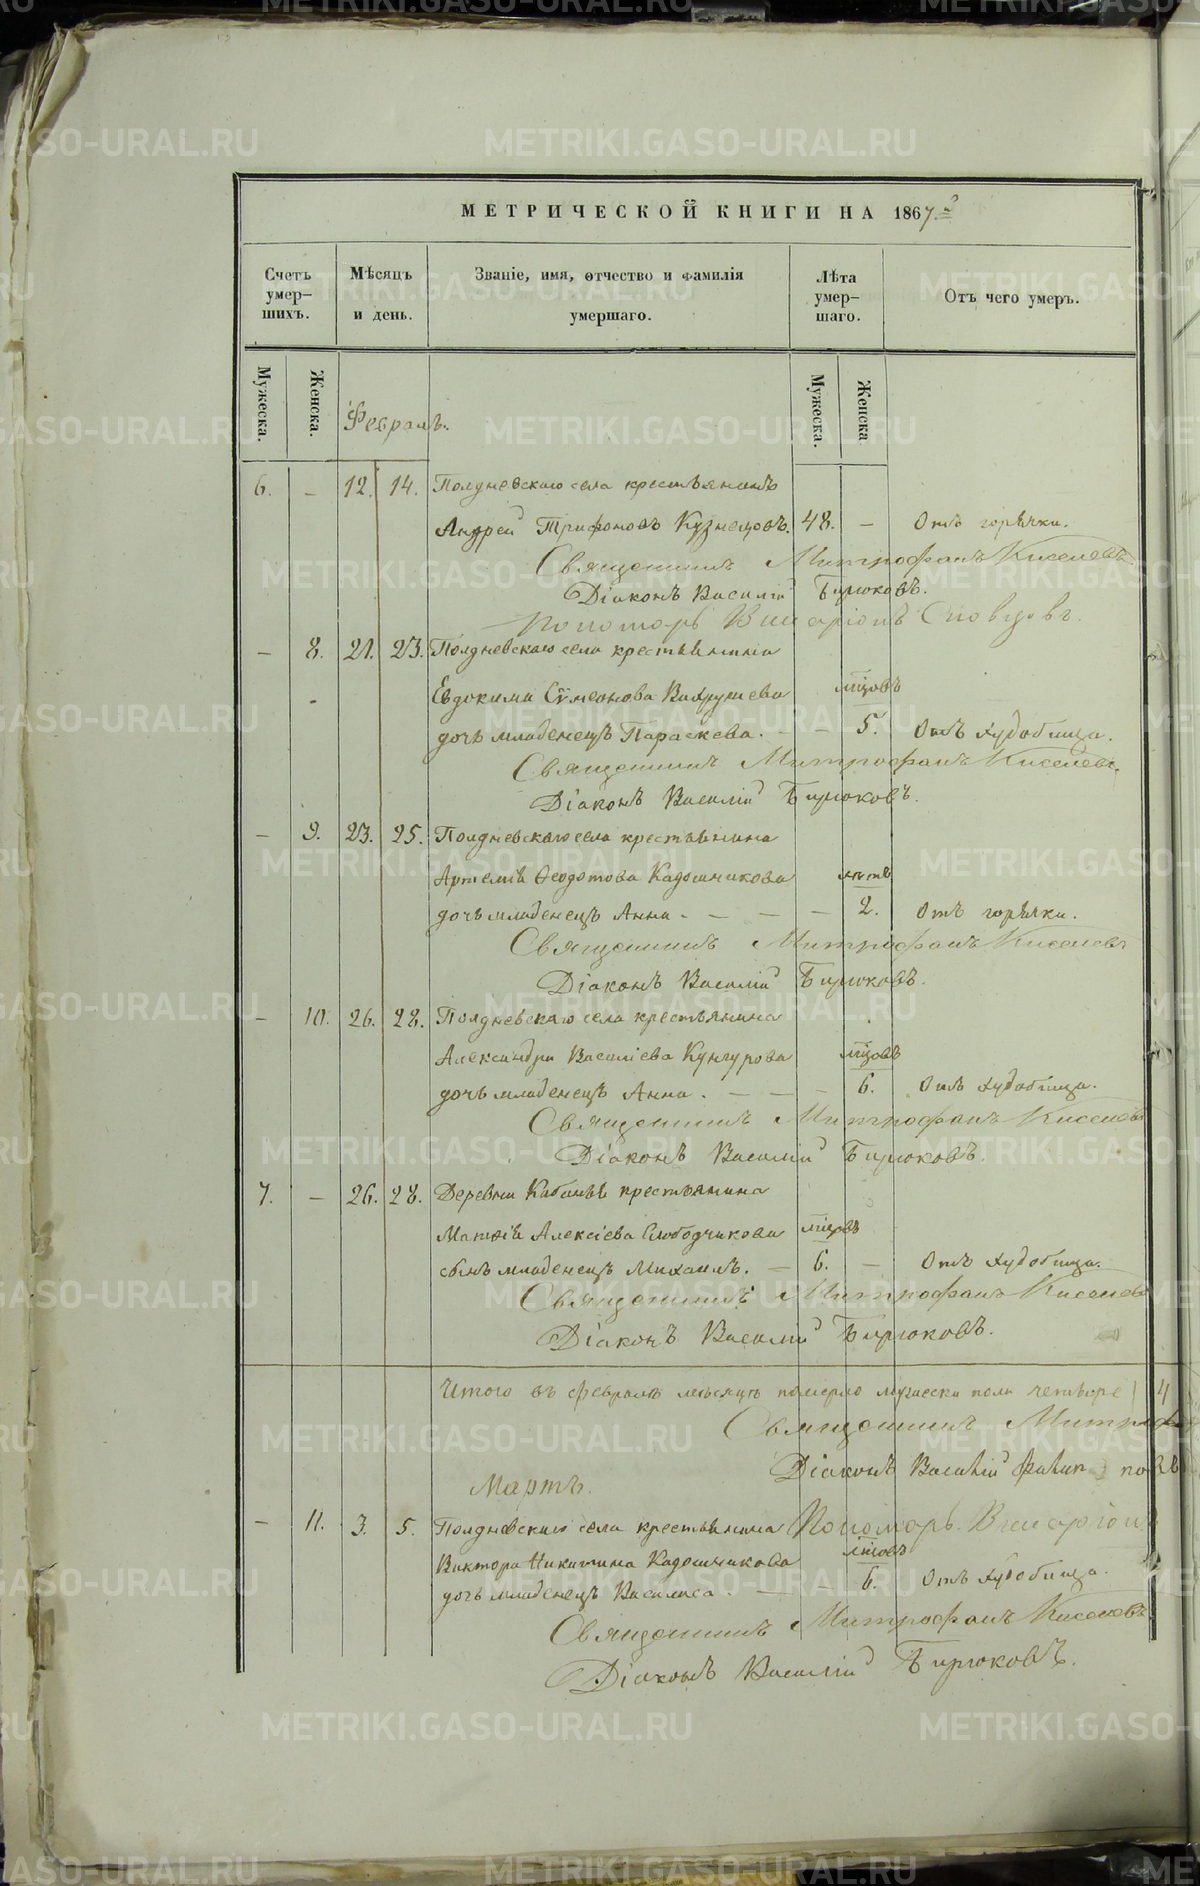 МЕТРИЧЕСКОЙ КНИГИ НА 1867.
Счетъ умер-шихъ.
Мѣсяцъ и день.
Званіе, имя, отчество и фамилія умершаго.
Лѣта умер-шаго.
Отъ чего умеръ.
Мужеска. Женска. Мужеска. Женска
Февраль.
6. – 12. 14. Полдневскаго села крестьянинъ
Андрей Трифоновъ Кузнецовъ. 48. – Отъ горячки.
Священникъ Митрофанъ Киселевъ
Діаконъ Василій Бирюковъ.
Пономарь Виссаріонъ
– 8. 21. 23. Полдневскаго села крестьянина
Евдокима Сѵмеонова Вахрушева мѣцовъ
дочь младенецъ Параскева. – – 5. Отъ худобища.
Священникъ Митрофанъ Киселевъ.
Діаконъ Василій Бирюковъ.
– 9. 23. 25. Полдневскаго села крестьянина
Артемія Ѳеодотова Кадошникова лѣтъ
дочь младенецъ Анна – – – – 2. Отъ горячки.
Священникъ Митрофанъ Киселевъ
Діаконъ Василій Бирюковъ.
– 10. 26. 28. Полдневскаго села крестьянина
Александра Василіева Кунгурова мѣцовъ
дочь младенецъ Анна. – – – 6. Отъ худобища.
Священникъ Митрофанъ Киселевъ
Діаконъ Василій Бирюковъ.
7. – 26. 28. Деревни Кабаньей крестьянина
Матѳія Алексіева Слободчикова мѣцовъ
сынъ младенецъ Михаилъ. – 6. – Отъ худобища.
Священникъ Митрофанъ Киселевъ
Діаконъ Василій Бирюковъ.
Итого въ февралѣ мѣсяцѣ померло мужеска пола четверо 4
Священникъ
Діаконъ Василій
Мартъ.
Пономарь Виссаріонъ
– 11. 3. 5. Полдневскаго села крестьянина
Виктора Никитина Кадошникова мѣцовъ
дочь младенецъ Василиса. – – 6. Отъ худобища.
Священникъ Митрофанъ Киселевъ
Діаконъ Василій Бирюковъ.
METRIKI.GASO-URAL.RU